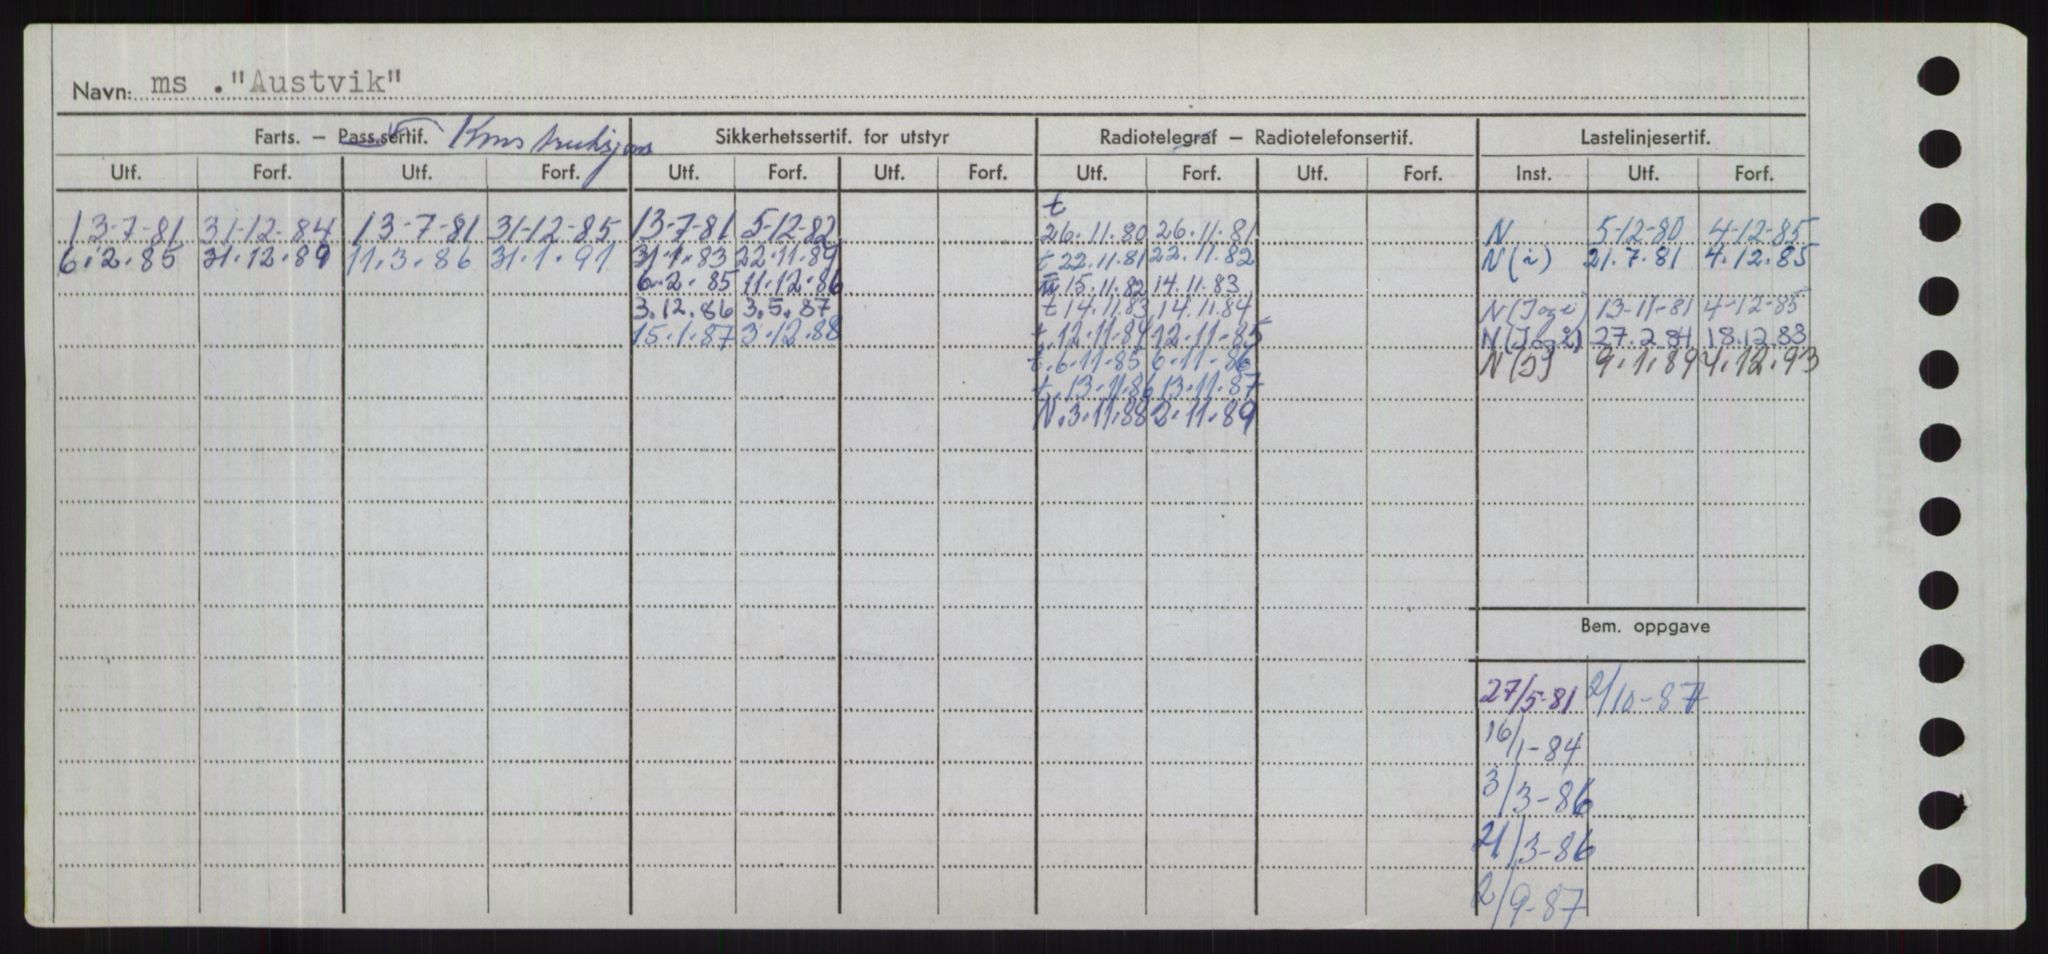 Navn: ms . "Austvik"
Farts. — Pass.sertif. Konstruksjons Sikkerhetssertif. for utstyr Radiotelegraf — Radiotelefonsertif. Lastelinjesertif.
Utf. Forf. Utf. Forf. Utf. Forf. Utf. Forf. Utf. Forf. Utf. Forf. Inst. Utf. Forf.
t
13-7-81 31-12-84 13-7-81 31-12-85 13-7-81 5-12-82 26.11.80 26.11.81 N 5-12-80 4-12-85
6.2.85 31.12.89 11.3.86 31.1.91 31.1.83 22.11.89 t 22.11.81 22.11.82 N(i) 21.7.81 4.12.85
6.2.85 11.12.86 15.11.82 14.11.83
3.12.86 3.5.87 t 14.11.83 14.11.84 N(I og i) 13-11-81 4-12-85
15.1.87 3.12.88 t.12.11.84 12.11.85 N(I og i) 27.2.84 18.12.83
t.6.11.85 6.11.86 N(I) 9.1.89 4.12.93
t.13.11.86 13.11.87
N.3.11.88 2.11.89
Bem. oppgave
27/5-81 2/10-87
16/1-84
3/3-86
21/3-86
2/9-87